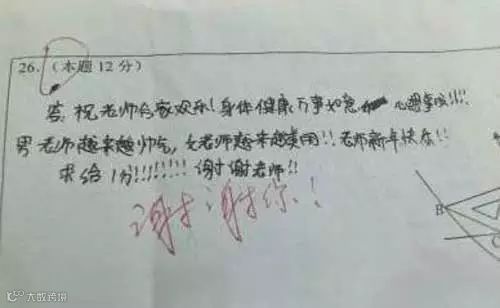 26. (本题 12 分)
答:祝老师合家欢乐!身体健康 万事如意 心想事成!!!
男老师越来越帅气,女老师越来越美丽!!老师新年快乐!!
求给1分!!!!!!!谢谢老师!!
谢谢你!
B
大数跨境